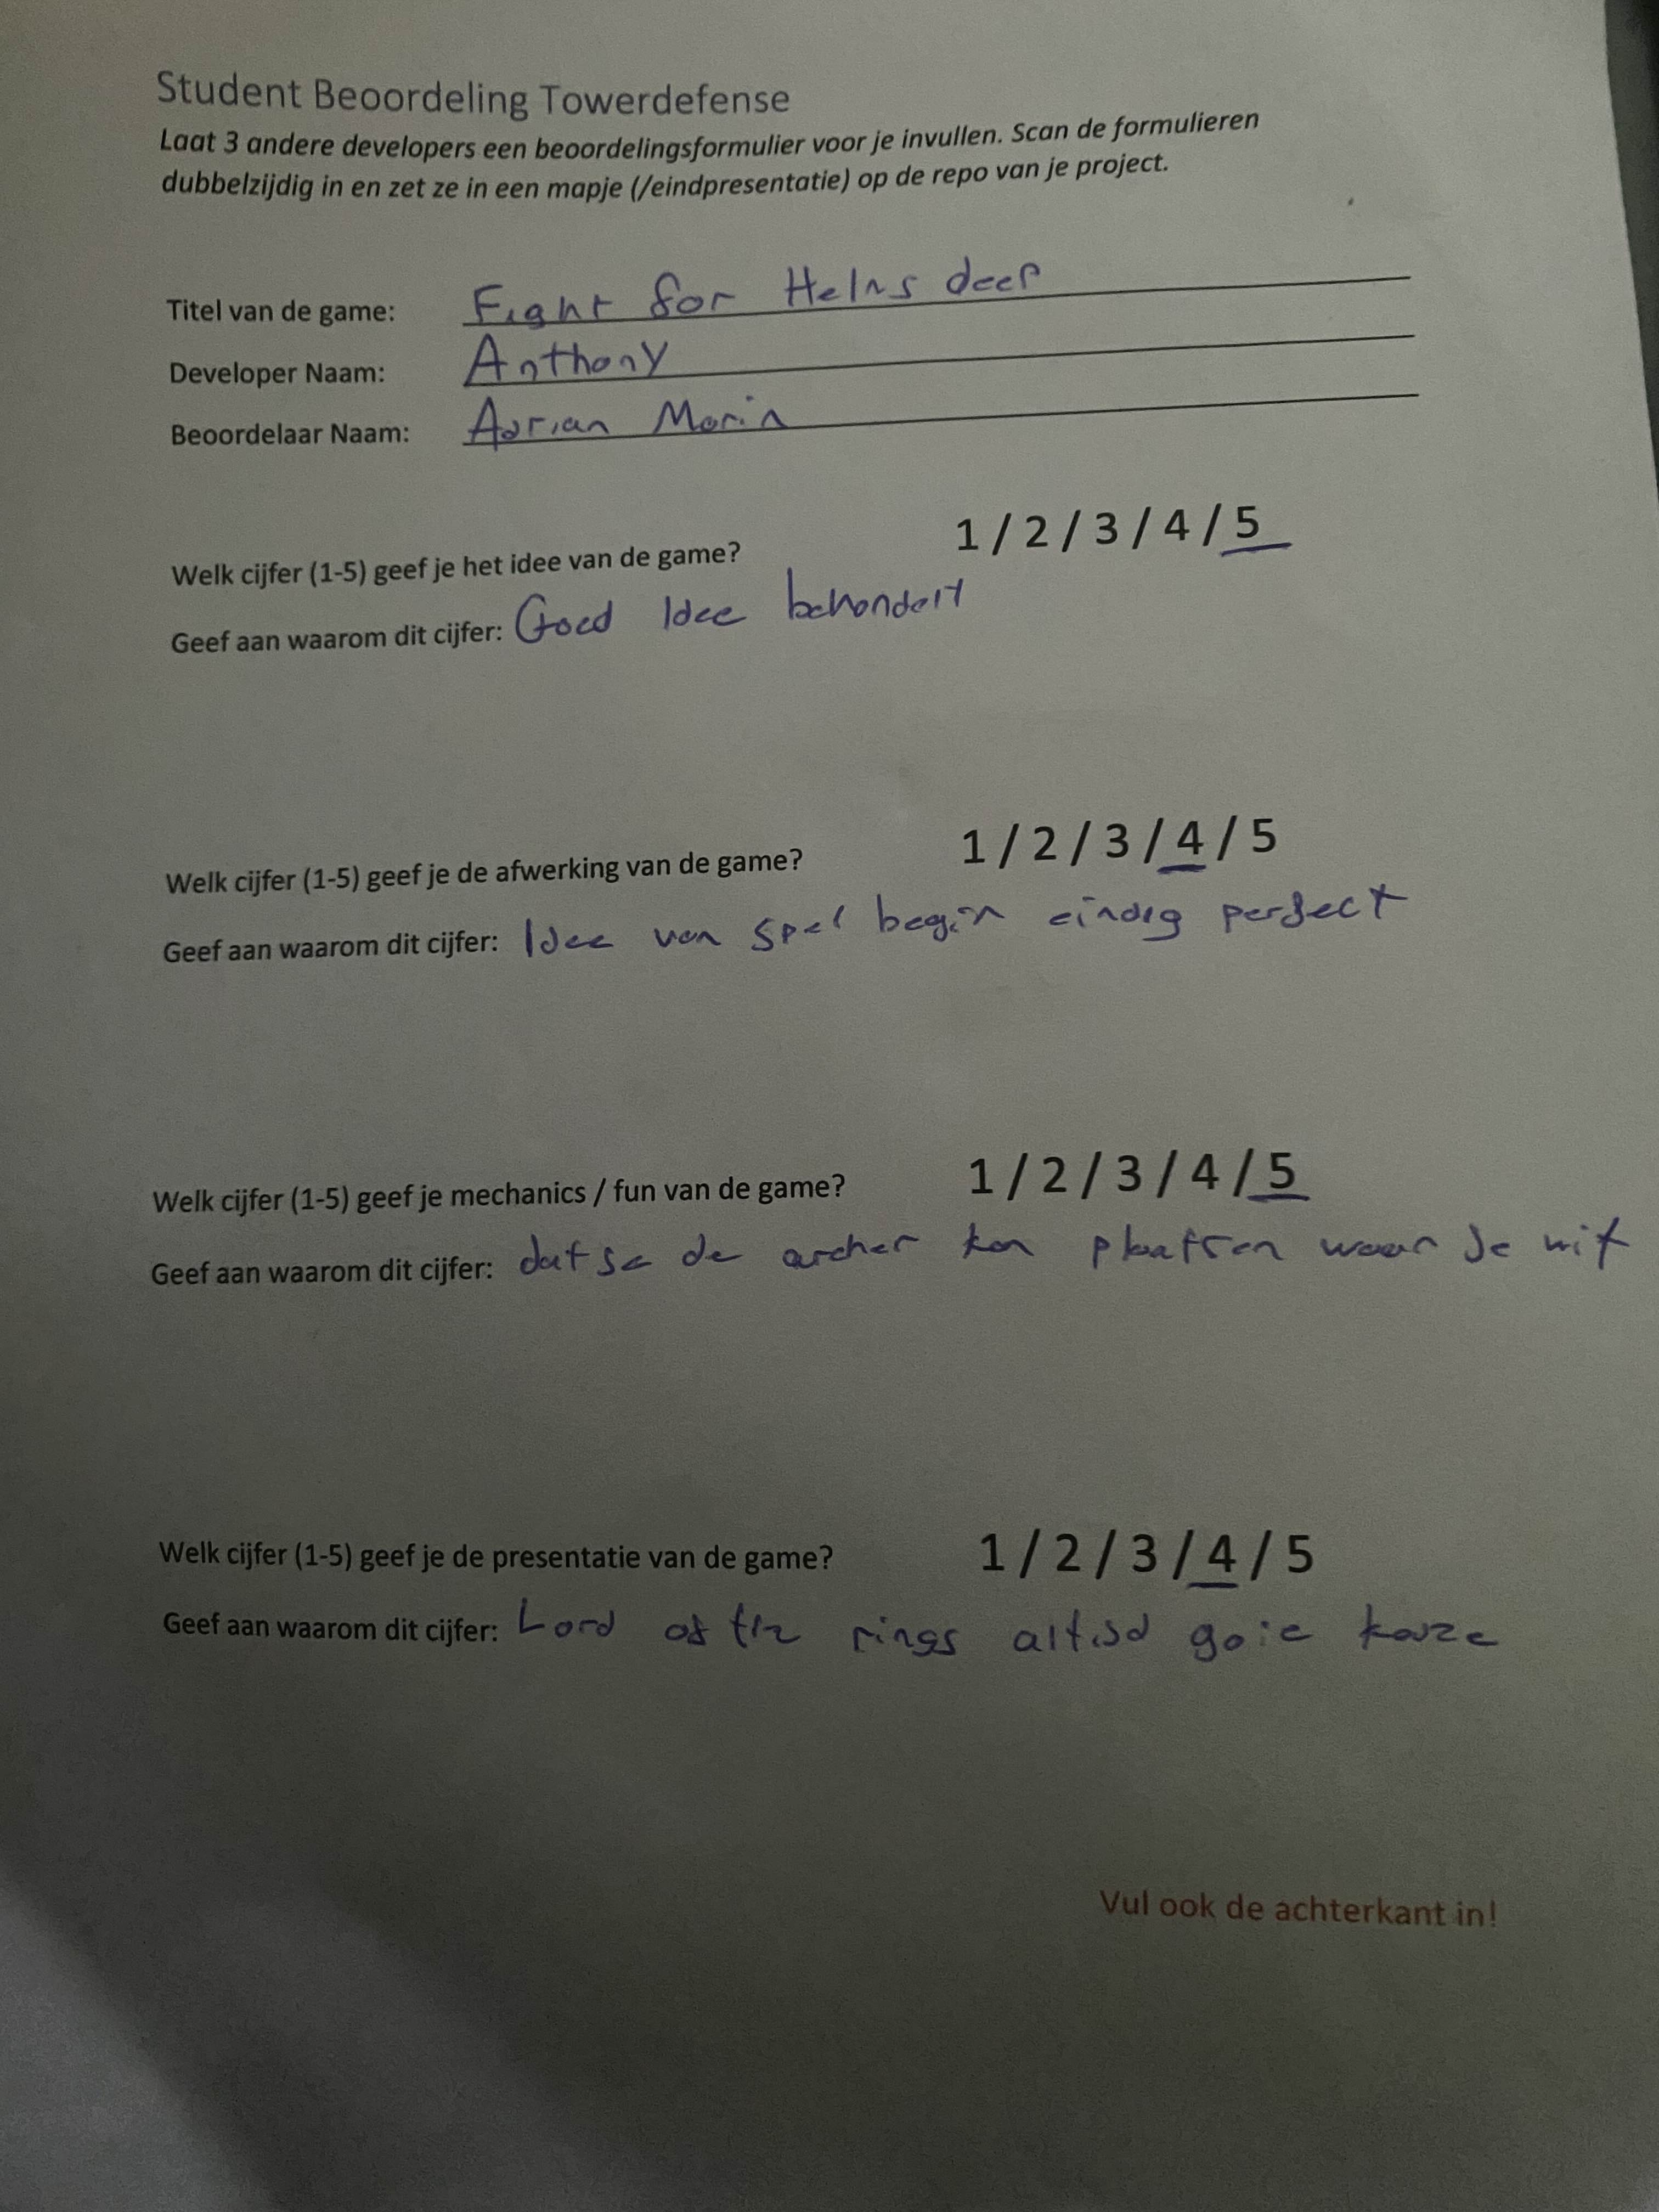 Student Beoordeling Towerdefense
Laat 3 andere developers een beoordelingsformulier voor je invullen. Scan de formulieren
dubbelzijdig in en zet ze in een mapje (/eindpresentatie) op de repo van je project.
Titel van de game: Fight for Helms deep
Developer Naam: Anthony
Beoordelaar Naam: Adrian Morin
Welk cijfer (1-5) geef je het idee van de game? 1 / 2 / 3 / 4 / 5
Geef aan waarom dit cijfer: Goed Idee behandelt
Welk cijfer (1-5) geef je de afwerking van de game? 1 / 2 / 3 / 4 / 5
Geef aan waarom dit cijfer: Idee van spel begin eindig perfect
Welk cijfer (1-5) geef je mechanics / fun van de game? 1 / 2 / 3 / 4 / 5
Geef aan waarom dit cijfer: dat je de archer kan plaatsen waar je wilt
Welk cijfer (1-5) geef je de presentatie van de game? 1 / 2 / 3 / 4 / 5
Geef aan waarom dit cijfer: Lord of the rings altijd goie keuze
Vul ook de achterkant in!